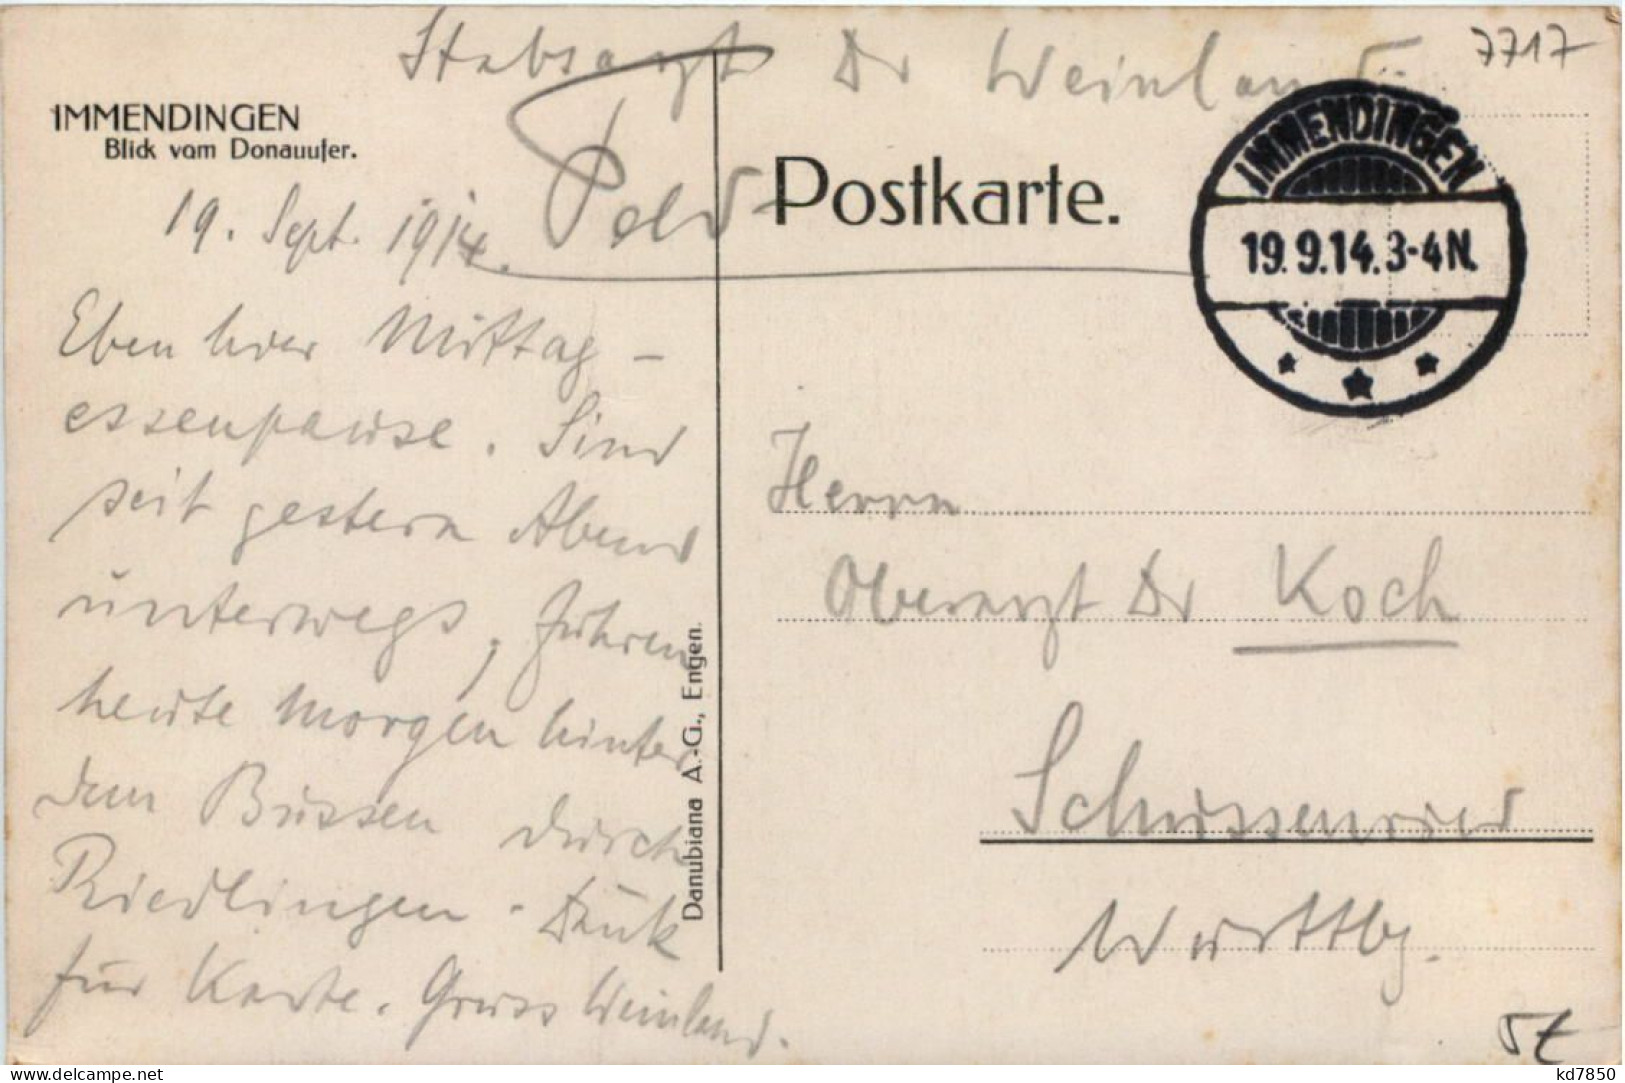 Stabsarzt Dr Weinland
7717
IMMENDINGEN
Blick vom Donauufer.
Feld-Postkarte.
IMMENDINGEN
19.9.14.3-4N.
19. Sept. 1914.
Eben hier Mittag-
essenpause. Sind
seit gestern Abend
unterwegs, fuhren
heute Morgen hinter
dem Bussen durch
Riedlingen. Dank
für Karte. Gruss Weinland.
Danubiana A.-G., Engen.
Herrn
Oberarzt Dr Koch
Schussenried
Württbg.
delcampe.net
kd7850